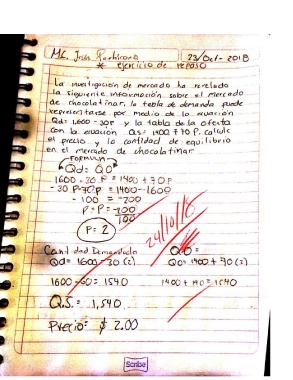 MC. Jesús 23/Oct-2018
* ejercicio de repaso
La investigación de mercado ha revelado
la siguiente información sobre el mercado
de chocolatinas, la tabla de demanda puede
representarse por medio de la ecuación
Qd = 1600 - 30P y la tabla de la oferta
con la ecuación Qs = 1400 + 70P. calcule
el precio y la cantidad de equilibrio
en el mercado de chocolatinas
FORMULA
Qd = QO
1600 - 30 P = 1400 + 70P
- 30 P - 70P = 1400 - 1600
- 100 = -200
P = P = -200
100
P = 2
24/10/18
Cantidad Demandada QO =
Qd = 1600 - 30 (2) QO = 1400 + 70 (2)
1600 - 60 = 1540 1400 + 140 = 1540
Q.S. = 1,540
Precio = $ 2.00
Scribe